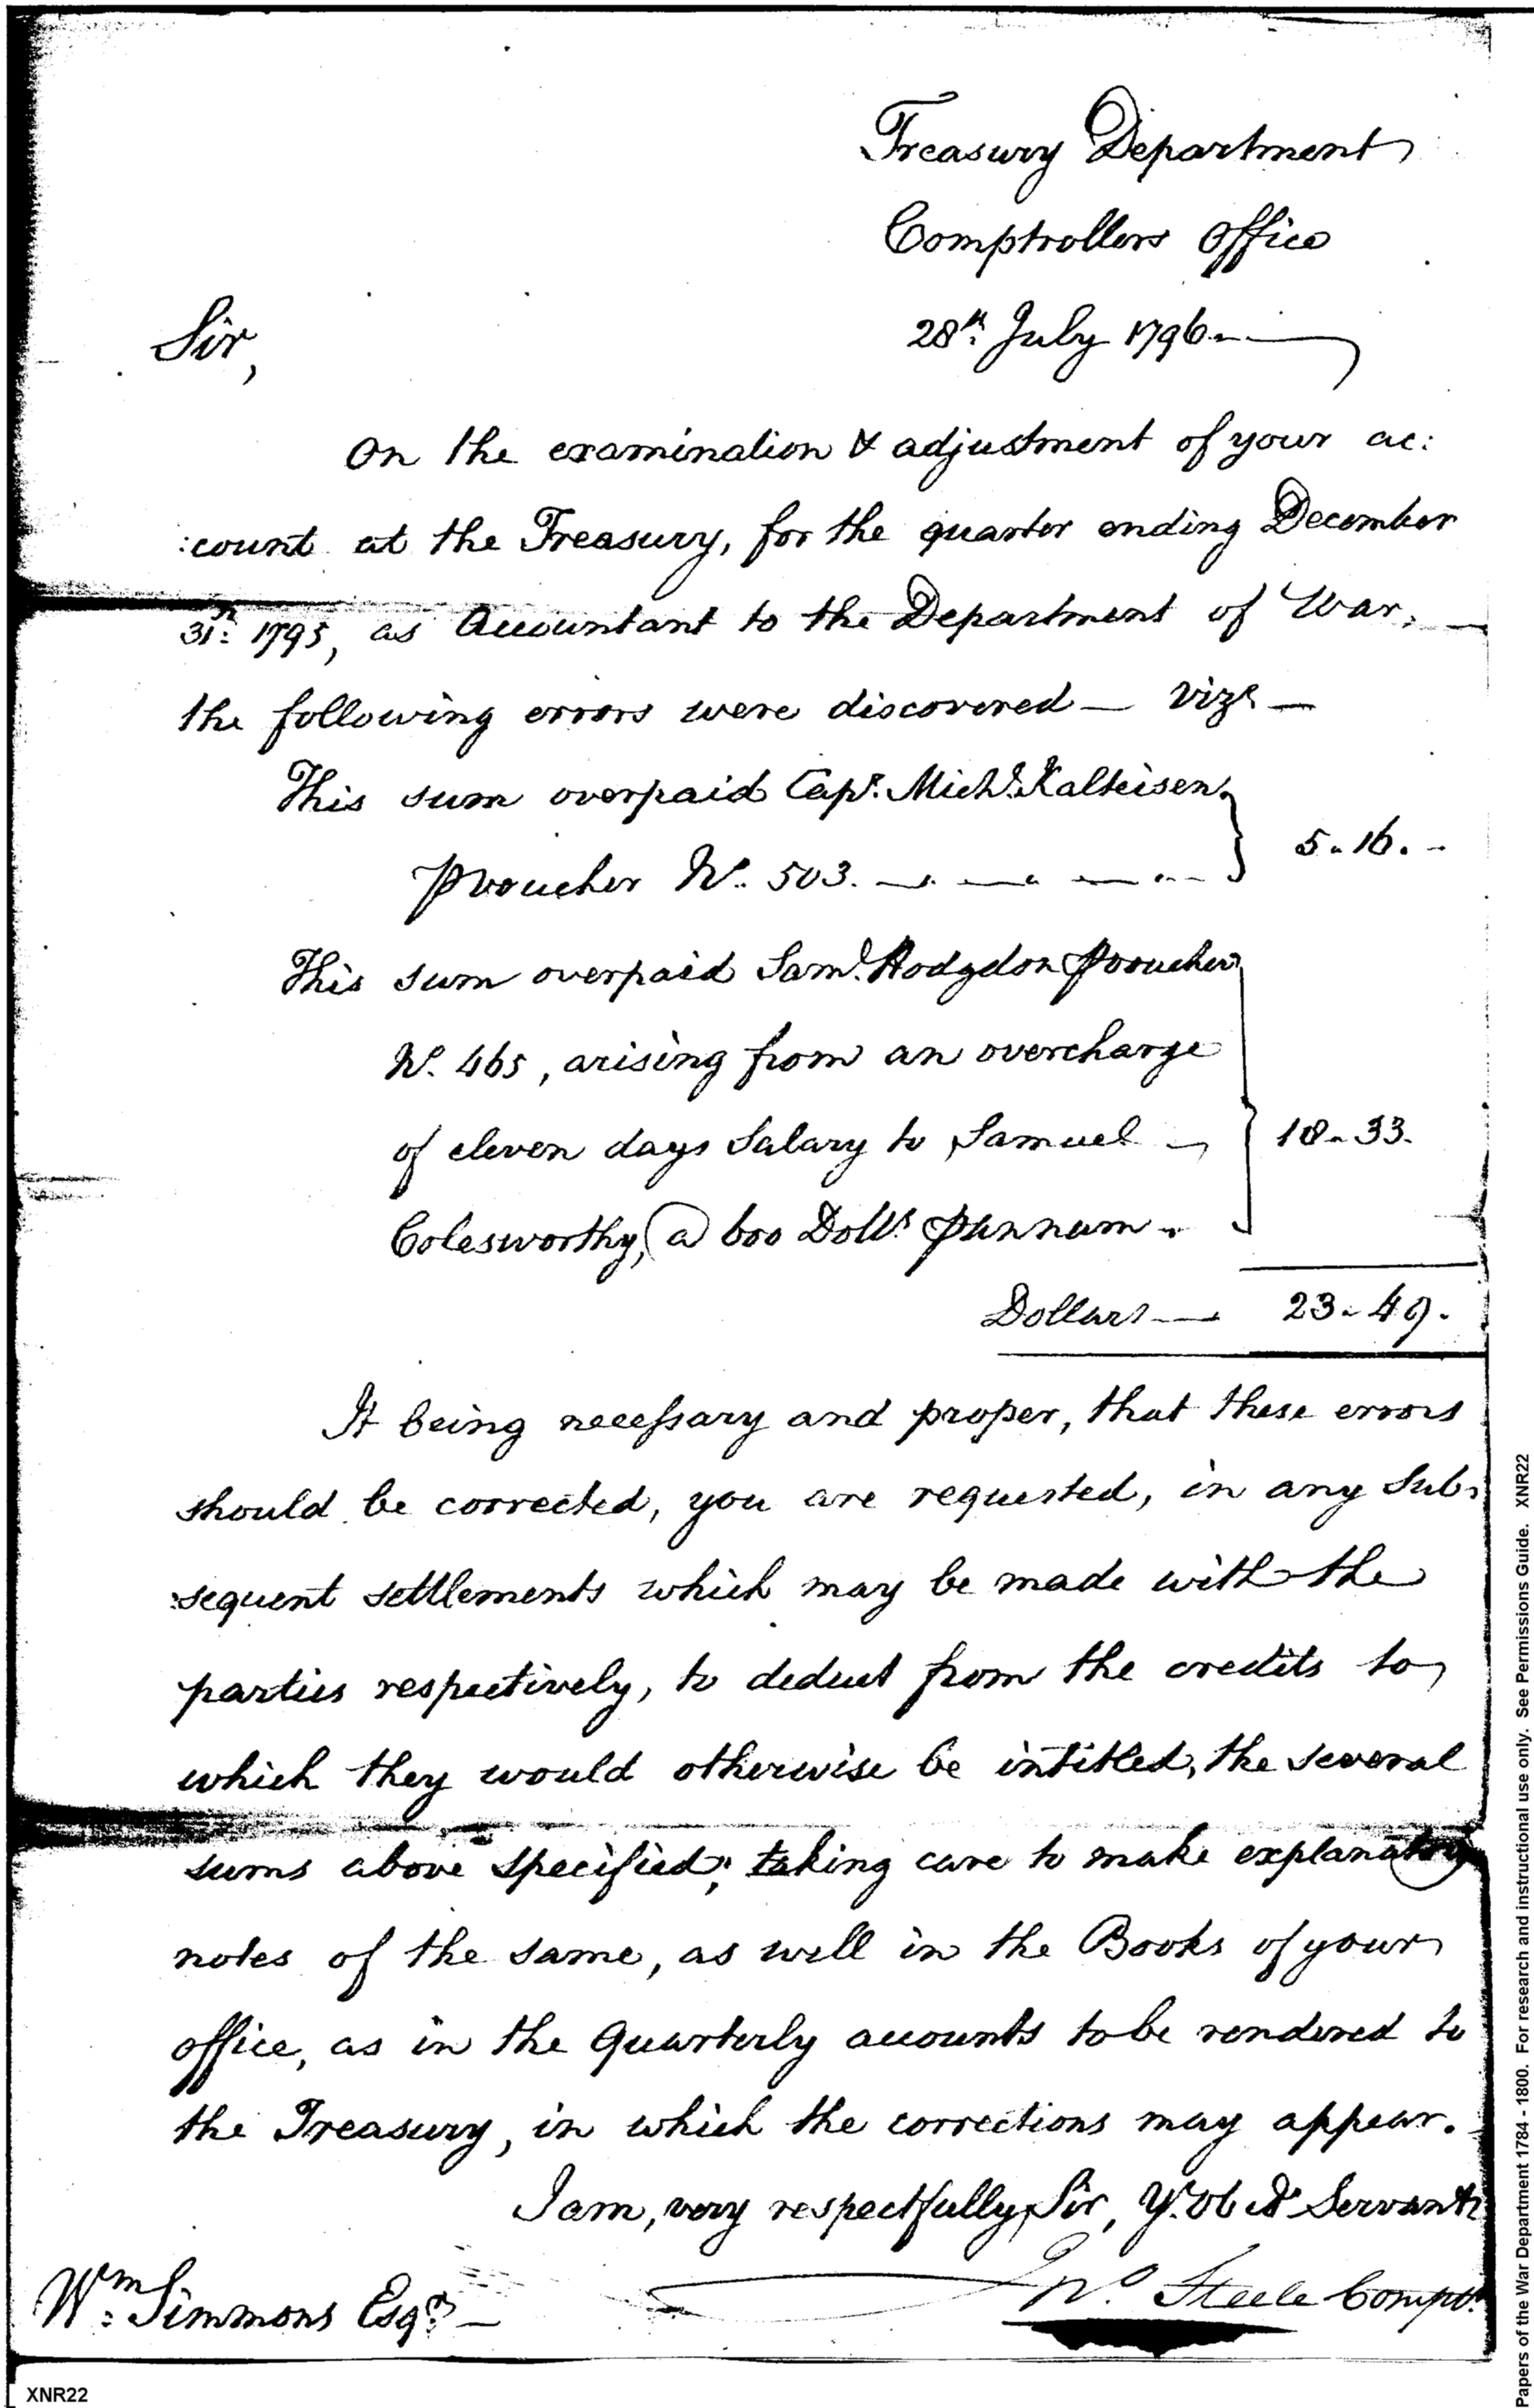 Treasury Department
Comptrollers Office
28th. July 1796.
Sir,
On the examination & adjustment of your ac:
:count at the Treasury, for the quarter ending December
31st. 1795, as Accountant to the Department of War,
the following errors were discovered — Vizt —
This sum overpaid Capt. Michl. Kalteisen,
⅌ voucher No. 503. } 5.16.
This sum overpaid Saml. Hodgdon ⅌ voucher
No. 465, arising from an overcharge
of eleven days Salary to Samuel } 18.33.
Colesworthy, @ 600 Dolls. ⅌ annum.
Dollars — 23.49.
It being necessary and proper, that these errors
should be corrected, you are requested, in any Sub:
:sequent settlements which may be made with the
parties respectively, to deduct from the credits to
which they would otherwise be intitled, the several
sums above specified; taking care to make explanatory
notes of the same, as well in the Books of your
office, as in the Quarterly accounts to be rendered to
the Treasury, in which the corrections may appear.
I am, very respectfully, Sir, Yr. Obedt Servant
Jno. Steele Compr.
Wm. Simmons Esqr. —
XNR22
Papers of the War Department 1784 - 1800. For research and instructional use only. See Permissions Guide. XNR22